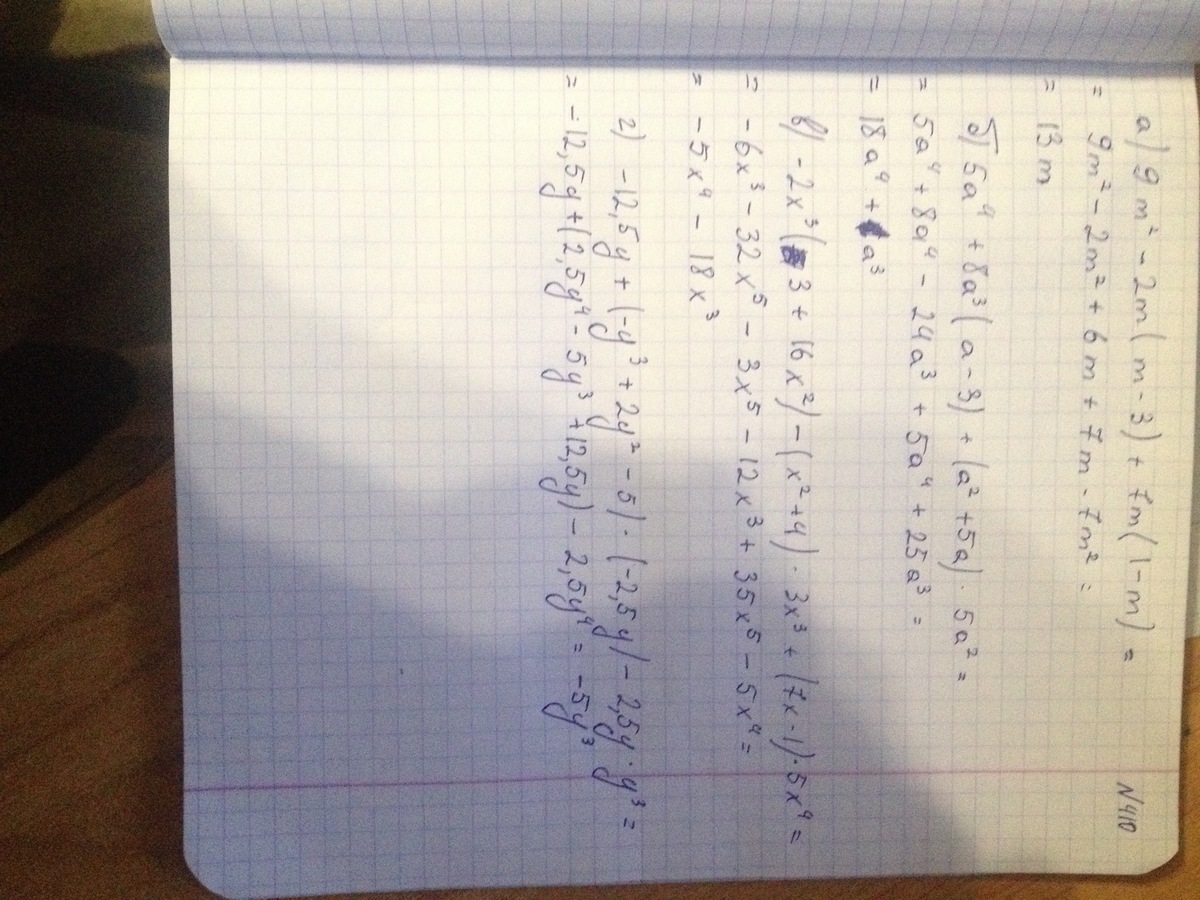 N410
а) 9m² - 2m(m-3) + 7m(1-m) =
= 9m² - 2m² + 6m + 7m - 7m² =
= 13m
б) 5a⁴ + 8a³(a-3) + (a²+5a)·5a² =
= 5a⁴ + 8a⁴ - 24a³ + 5a⁴ + 25a³ =
= 18a⁴ + a³
в) -2x³(3 + 16x²) - (x²+4)·3x³ + (7x-1)·5x⁴ =
= -6x³ - 32x⁵ - 3x⁵ - 12x³ + 35x⁵ - 5x⁴ =
= -5x⁴ - 18x³
г) -12,5y + (-y³ + 2y² - 5)·(-2,5y) - 2,5y·y³ =
= -12,5y + (2,5y⁴ - 5y³ + 12,5y) - 2,5y⁴ = -5y³